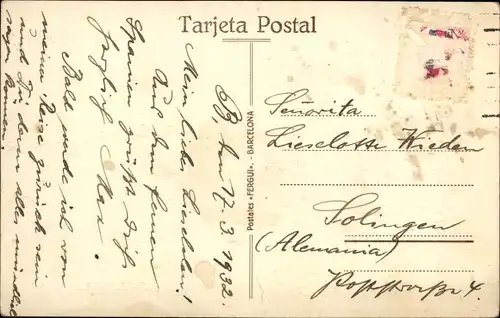 Tarjeta Postal
Postales «FERGUI». - BARCELONA
den 17.3.1932.
Mein liebes Lieselchen!
Aus dem fernen
Spanien grüßt Dich
herzlich Max.
Bald werde ich von
meiner Reise zurück sein
und Dir dann alles mündlich
sagen können.
Señorita
Lieselotte Wieden
Solingen
(Alemania)
Poststraße 4.